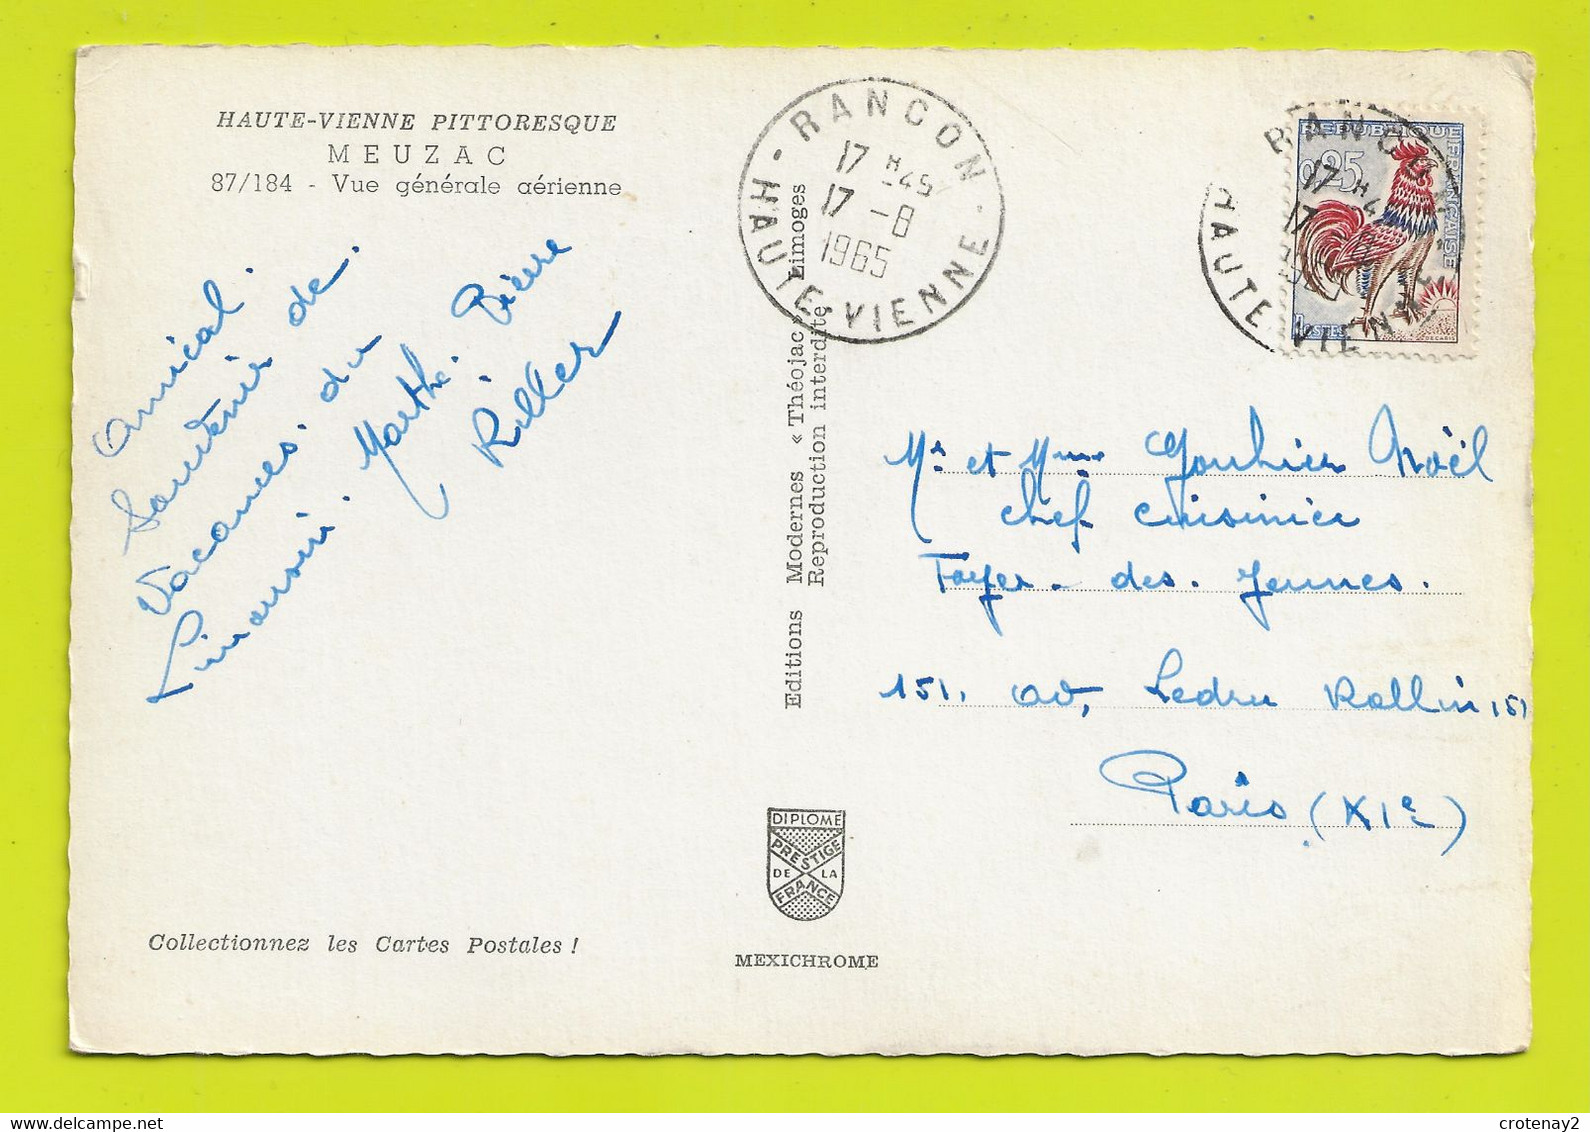 HAUTE-VIENNE PITTORESQUE
MEUZAC
87/184 - Vue générale aérienne
Amical.
Souvenir de.
Vacances. du
Limousin. Marthe. Pierre
Riller
Collectionnez les Cartes Postales !
Editions Modernes « Théojac » Limoges
Reproduction interdite
DIPLOME
PRESTIGE
DE LA
FRANCE
MEXICHROME
RANCON
17 H 45
17 -8
1965
HAUTE-VIENNE
REPUBLIQUE FRANÇAISE
0,25
POSTES
DECARIS
RANCON
17 H 4
17
HAUTE-VIENNE
Mr et Mme Gouhier Noël
chef cuisinier
Foyer. des. Jeunes.
151, av, Ledru Rollin 151
Paris (XIe)
crotenay2